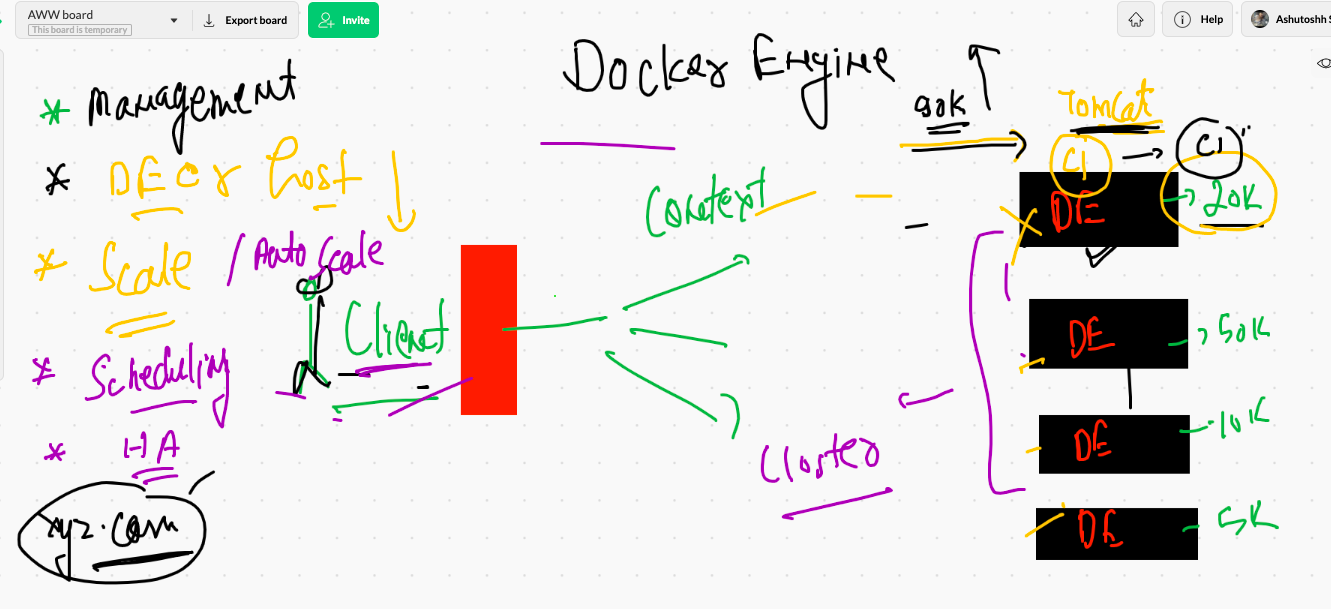 AWW board
This board is temporary
Export board
Invite
Help
Ashutoshh S
Docker Engine
* Management
* DE or host
* Scale / Auto Scale
* Scheduling
* HA
xyz.com
Client
Context
Cluster
90K
Tomcat
C1
C1"
DE
20K
DE
50K
DE
10K
DE
5K